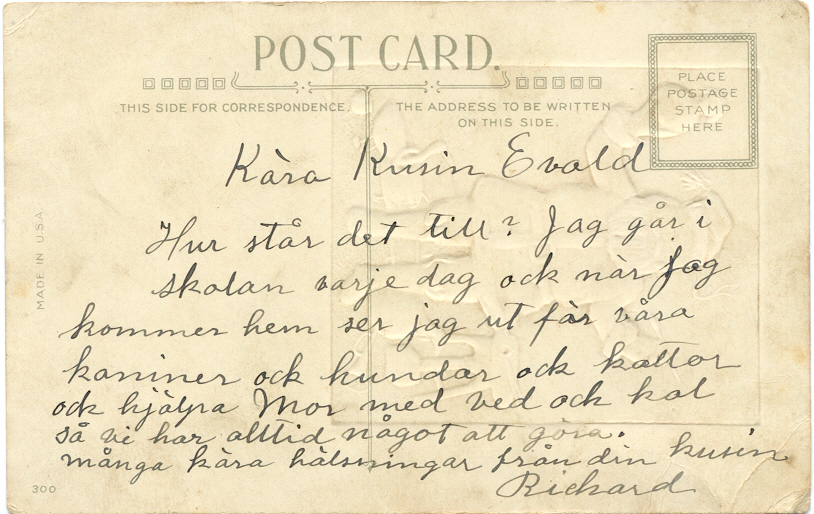 POST CARD.
THIS SIDE FOR CORRESPONDENCE.
THE ADDRESS TO BE WRITTEN
ON THIS SIDE.
PLACE
POSTAGE
STAMP
HERE
MADE IN U.S.A.
Kàra Kusin Evald
Hur står det till? Jag går i
skolan varje dag ock nàr jag
kommer hem ser jag ut fàr våra
kaniner ock hundar ock kattor
ock hjàlpa Mor med ved och kol
så vi har alltid något att göra.
många kàra hàlsningar från din kusin
Rickard
300